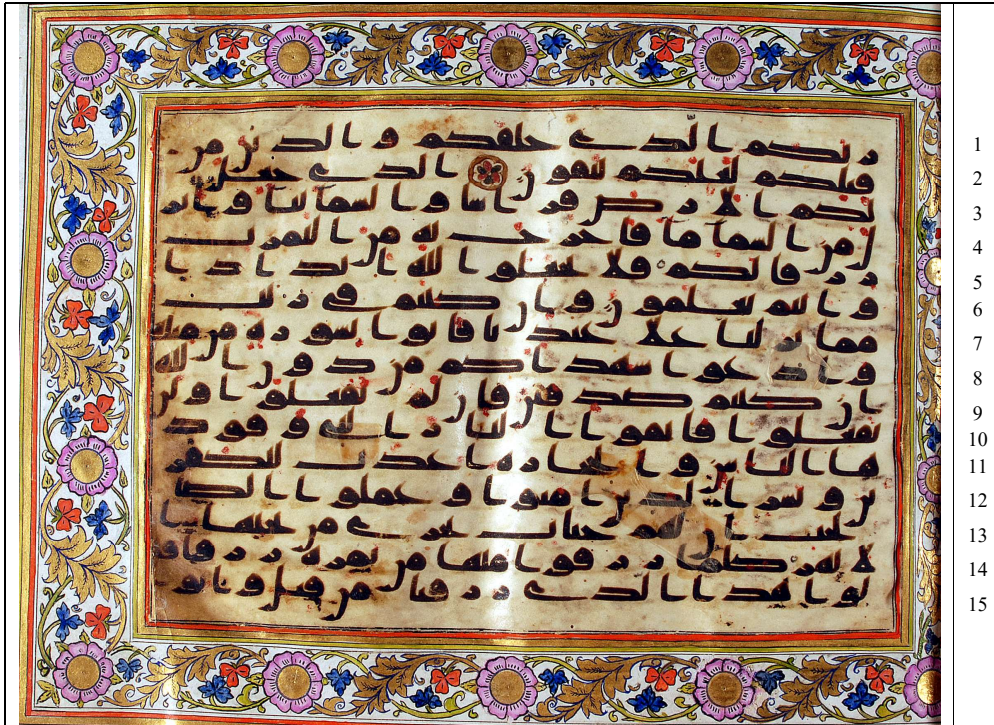 ربكم الذي خلقكم والذين من 1
قبلكم لعلكم تتقون الذي جعل 2
لكم الارض فرشا والسما بنا وانز 3
ل من السما ما فاخرج به من الثمرت 4
رزقا لكم فلا تجعلوا لله اندادا 5
وانتم تعلمون وان كنتم في ريب 6
مما نزلنا على عبدنا فاتوا بسورة من مثله 7
وادعوا شهداكم من دون الله 8
ان كنتم صدقين فان لم تفعلوا ولن 9
تفعلوا فاتقوا النار التي وقود 10
ها الناس والحجارة اعدت للكفر 11
ين وبشر الذين امنوا وعملوا الصا 12
لحت ان لهم جنات تجري من تحتها ا 13
لانهر كلما رزقوا منها من ثمرة رزقا قا 14
لوا هذا الذي رزقنا من قبل واتو 15